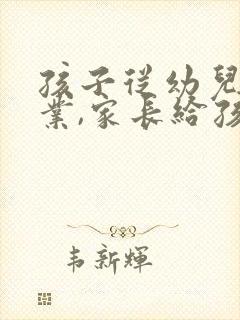 孩子從幼兒
業,家長給孩
韋新輝